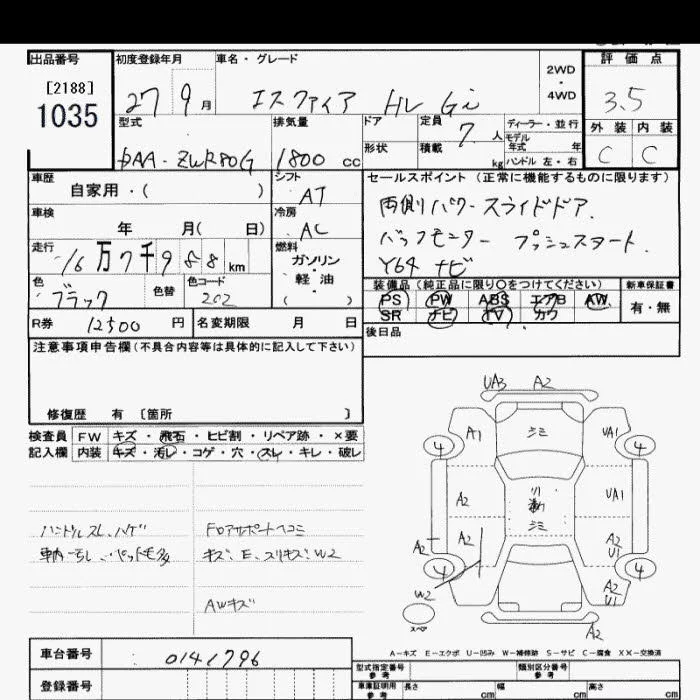 出品番号
[2188]
1035
初度登録年月
27 9 月
車名・グレード
エスクァイア HV Gi
2WD
・
4WD
評価点
3.5
外装 内装
C C
型式
DAA-ZWR80G
排気量
1800 cc
ドア
形状
定員
7 人
積載
kg
ディーラー・並行
モデル
年式 年
ハンドル 左・右
車歴
自家用・( )
シフト
AT
車検
年 月( 日)
冷房
AC
走行
16万7千988 km
燃料
ガソリン
・
軽油
( )
色
ブラック
色替
色コード
202
R券 12500 円
名変期限 月 日
セールスポイント (正常に機能するものに限ります)
両側パワースライドドア.
バックモニター プッシュスタート.
ナビ
装備品(純正品に限り〇をつけてください)
PS PW ABS エアB AW
SR ナビ TV カワ
新車保証書
有・無
後日品
注意事項申告欄(不具合内容等は具体的に記入して下さい)
修復歴 有 〔箇所 〕
検査員
記入欄
FW キズ・飛石・ヒビ割・リペア跡・×要
内装 キズ・汚レ・コゲ・穴・スレ・キレ・破レ
ハンドルスレ、ハゲ
キズ、E、スリキズ、W2
AWキズ
UA3 A2
A1 シミ UA1
4 4
A2 シミ UA1
A2 A2 A2
U1
4 4
W2 A2
U1
スペア
A2
A-キズ E-エクボ U-凹み W-補修跡 S-サビ C-腐食 XX-交換済
車台番号
0141796
登録番号
型式指定番号
参考
類別区分番号
参考
車庫証明用
参考
長さ cm
幅 cm
高さ cm